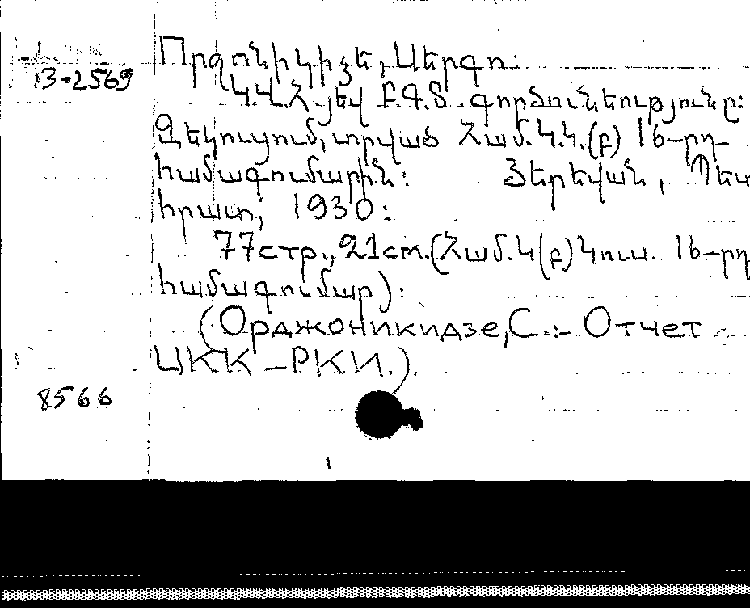 Որջոնիկիձե, Սերգո:
B-2569
Կ.Վ.Հ. յեվ Բ.Գ.Տ. գործունեությունը:
Զեկուցում, տրված Համ.Կ.Կ.(բ) 16-րդ
համագումարին: Յերեվան, Պետ
հրատ; 1930:
77стр., 21см. (Համ.Կ(բ)Կուս. 16-րդ
համագումար):
(Орджоникидзе, С.:- Отчет
ЦКК-РКИ.)
8566